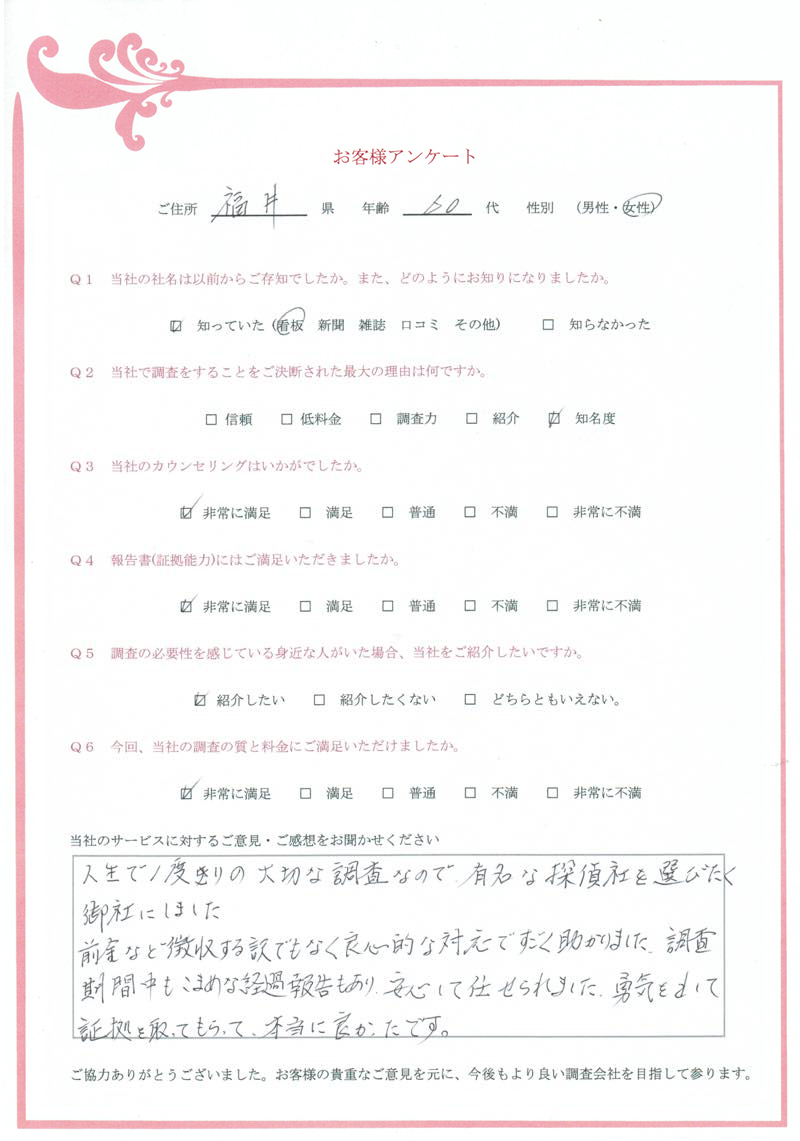 お客様アンケート
ご住所 福井 県 年齢 60 代 性別 (男性・女性)
Q1 当社の社名は以前からご存知でしたか。また、どのようにお知りになりましたか。
☑ 知っていた (看板 新聞 雑誌 口コミ その他) □ 知らなかった
Q2 当社で調査をすることをご決断された最大の理由は何ですか。
□ 信頼 □ 低料金 □ 調査力 □ 紹介 ☑ 知名度
Q3 当社のカウンセリングはいかがでしたか。
☑ 非常に満足 □ 満足 □ 普通 □ 不満 □ 非常に不満
Q4 報告書(証拠能力)にはご満足いただきましたか。
☑ 非常に満足 □ 満足 □ 普通 □ 不満 □ 非常に不満
Q5 調査の必要性を感じている身近な人がいた場合、当社をご紹介したいですか。
☑ 紹介したい □ 紹介したくない □ どちらともいえない。
Q6 今回、当社の調査の質と料金にご満足いただけましたか。
☑ 非常に満足 □ 満足 □ 普通 □ 不満 □ 非常に不満
当社のサービスに対するご意見・ご感想をお聞かせください
人生で1度きりの大切な調査なので、有名な探偵社を選びたく
御社にしました
前金など徴収する訳でもなく良心的な対応ですごく助かりました、調査
期間中もこまめな経過報告もあり、安心して任せられました、勇気を出して
証拠を取ってもらって、本当に良かったです。
ご協力ありがとうございました。お客様の貴重なご意見を元に、今後もより良い調査会社を目指して参ります。